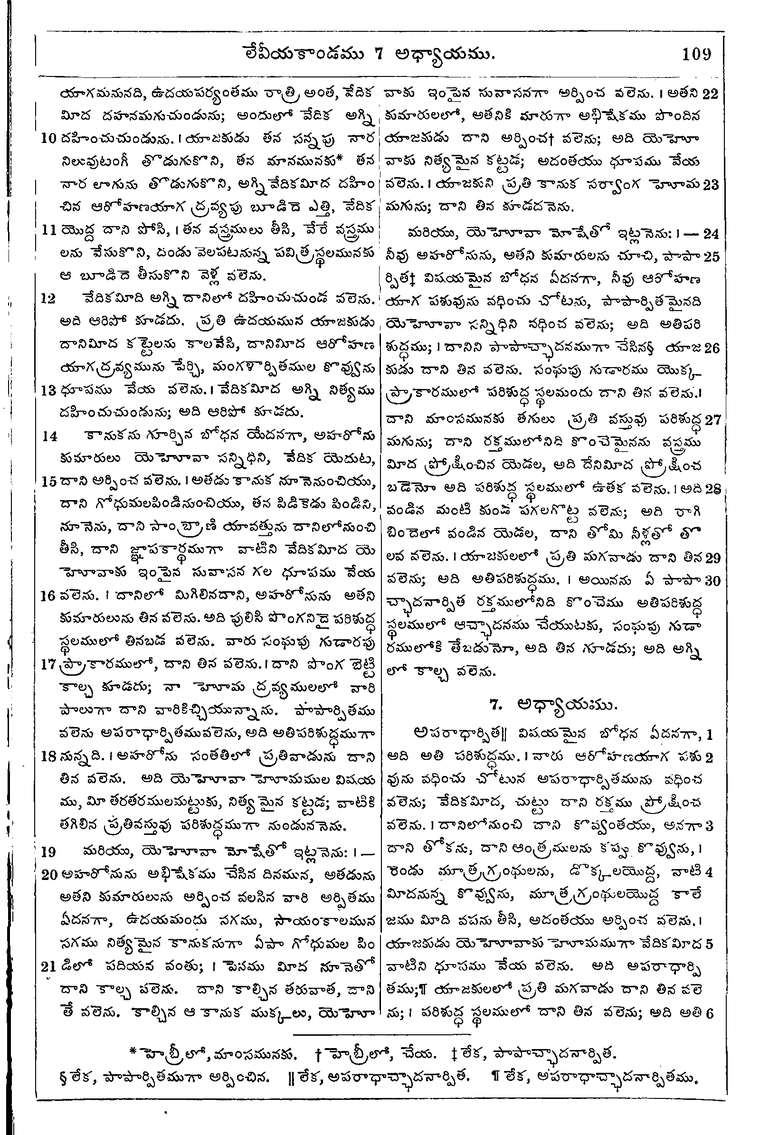 లేవీయకాండము 7 అధ్యాయము. 109
యాగమనునది, ఉదయపర్యంతము రాత్రి అంత, వేదిక
మీఁద దహనమగుచుండును; అందులో వేదిక అగ్ని
10 దహించుచుండును. । యాజకుడు తన సన్నపు నార
నిలువుటంగీ తొడుగుకొని, తన మానమునకు* తన
నార లాగును తొడుగుకొని, అగ్ని వేదికమీఁద దహిం
చిన ఆరోహణయాగ ద్రవ్యపు బూడిదె ఎత్తి, వేదిక
11 యొద్ద దాని పోసి, । తన వస్త్రములు తీసి, వేరే వస్త్రము
లను వేసుకొని, దండు వెలపటనున్న పవిత్ర స్థలమునకు
ఆ బూడిదె తీసుకొని వెళ్ల వలెను.
12 వేదికమీఁది అగ్ని దానిలో దహించుచుండ వలెను.
అది ఆరిపో కూడదు. ప్రతి ఉదయమున యాజకుడు
దానిమీఁద కట్టెలను కాలవేసి, దానిమీఁద ఆరోహణ
యాగద్రవ్యమును పేర్చి, మంగళార్పితముల కొవ్వును
13 ధూపము వేయ వలెను. । వేదికమీఁద అగ్ని నిత్యము
దహించుచుండును; అది ఆరిపో కూడదు.
14 కానుకను గూర్చిన బోధన యేదనగా, అహరోను
కుమారులు యెహోవా సన్నిధిని, వేదిక యెదుట,
15 దాని అర్పించ వలెను. । అతడు కానుక నూనెనుంచియు,
దాని గోధుమలపిండినుంచియు, తన పిడికెడు పిండిని,
నూనెను, దాని సాంబ్రాణి యావత్తును దానిలోనుంచి
తీసి, దాని జ్ఞాపకార్థముగా వాటిని వేదికమీఁద యె
హోవాకు ఇంపైన సువాసన గల ధూపము వేయ
16 వలెను. । దానిలో మిగిలినదాని, అహరోనును అతని
కుమారులును తిన వలెను. అది పులిసి పొంగనిదై పరిశుద్ధ
స్థలములో తినబడ వలెను. వారు సంఘపు గుడారపు
17 ప్రాకారములో, దాని తిన వలెను. । దాని పొంగ బెట్టి
కాల్చ కూడదు; నా హోమ ద్రవ్యములలో వారి
పాలుగా దాని వారికిచ్చియున్నాను. పాపార్పితము
వలెను అపరాధార్పితమువలెను, అది అతిపరిశుద్ధముగా
18 నున్నది. । అహరోను సంతతిలో ప్రతివాడును దాని
తిన వలెను. అది యెహోవా హోమముల విషయ
ము, మీ తరతరములమట్టుకు, నిత్యమైన కట్టడ; వాటికి
తగిలిన ప్రతివస్తువు పరిశుద్ధముగా నుండుననెను.
19 మరియు, యెహోవా మోషేతో ఇట్లనెను: । —
20 అహరోనును అభిషేకము చేసిన దినమున, అతడును
అతని కుమారులును అర్పించ వలసిన వారి అర్పితము
ఏదనగా, ఉదయమందు సగము, సాయంకాలమున
సగము నిత్యమైన కానుకనుగా ఏపా గోధుమల పిం
21 డిలో పదియన వంతు; । పెనము మీఁద నూనెతో
దాని కాల్చ వలెను. దాని కాల్చిన తరువాత, దాని
తే వలెను. కాల్చిన ఆ కానుక ముక్కలు, యెహో
వాకు ఇంపైన సువాసనగా అర్పించ వలెను. । అతని 22
కుమారులలో, అతనికి మారుగా అభిషేకము పొందిన
యాజకుడు దాని అర్పించ† వలెను; అది యెహో
వాకు నిత్యమైన కట్టడ; అదంతయు ధూపము వేయ
వలెను. । యాజకుని ప్రతి కానుక సర్వాంగ హోమ 23
మగును; దాని తిన కూడదనెను.
మరియు, యెహోవా మోషేతో ఇట్లనెను: । — 24
నీవు అహరోనును, అతని కుమారులను చూచి, పాపా 25
ర్పిత‡ విషయమైన బోధన ఏదనగా, నీవు ఆరోహణ
యాగ పశువును వధించు చోటను, పాపార్పితమైనది
యెహోవా సన్నిధిని వధించ వలెను; అది అతిపరి
శుద్ధము; । దానిని పాపాచ్ఛాదనముగా చేసిన§ యాజ 26
కుడు దాని తిన వలెను. సంఘపు గుడారము యొక్క
ప్రాకారములో పరిశుద్ధ స్థలమందు దాని తిన వలెను. ।
దాని మాంసమునకు తగులు ప్రతి వస్తువు పరిశుద్ధ 27
మగును; దాని రక్తములోనిది కొంచెమైనను వస్త్రము
మీఁద ప్రోక్షించిన యెడల, అది దేనిమీఁద ప్రోక్షించ
బడెనో అది పరిశుద్ధ స్థలములో ఉతక వలెను. । అది 28
వండిన మంటి కుండ పగలగొట్ట వలెను; అది రాగి
బిందెలో వండిన యెడల, దాని తోమి నీళ్లతో తొ
లవ వలెను. । యాజకులలో ప్రతి మగవాడు దాని తిన 29
వలెను; అది అతిపరిశుద్ధము. । అయినను ఏ పాపా 30
చ్ఛాదనార్పిత రక్తములోనిది కొంచెము అతిపరిశుద్ధ
స్థలములో ఆచ్ఛాదనము చేయుటకు, సంఘపు గుడా
రములోకి తేబడునో, అది తిన గూడదు; అది అగ్ని
లో కాల్చ వలెను.
7. అధ్యాయము.
అపరాధార్పిత|| విషయమైన బోధన ఏదనగా, 1
అది అతి పరిశుద్ధము. । వారు ఆరోహణయాగ పశు 2
వును వధించు చోటున అపరాధార్పితమును వధించ
వలెను; వేదికమీఁద, చుట్టు దాని రక్తము ప్రోక్షించ
వలెను. । దానిలోనుంచి దాని కొవ్వంతయు, అనగా 3
దాని తోకను, దాని ఆంత్రములను కప్పు కొవ్వును, ।
రెండు మూత్రగ్రంథులను, డొక్కలయొద్ద, వాటి 4
మీఁదనున్న కొవ్వును, మూత్రగ్రంథులయొద్ద కాలే
జము మీఁది వపను తీసి, అదంతయు అర్పించ వలెను. ।
యాజకుడు యెహోవాకు హోమముగా వేదికమీఁద 5
వాటిని ధూపము వేయ వలెను. అది అపరాధార్పి
తము;¶ యాజకులలో ప్రతి మగవాడు దాని తిన వలె
ను; । పరిశుద్ధ స్థలములో దాని తిన వలెను; అది అతి 6
* హెబ్రీలో, మాంసమునకు. † హెబ్రీలో, చేయ. ‡ లేక, పాపాచ్ఛాదనార్పిత.
§ లేక, పాపార్పితముగా అర్పించిన. || లేక, అపరాధాచ్ఛాదనార్పిత. ¶ లేక, అపరాధాచ్ఛాదనార్పితము.